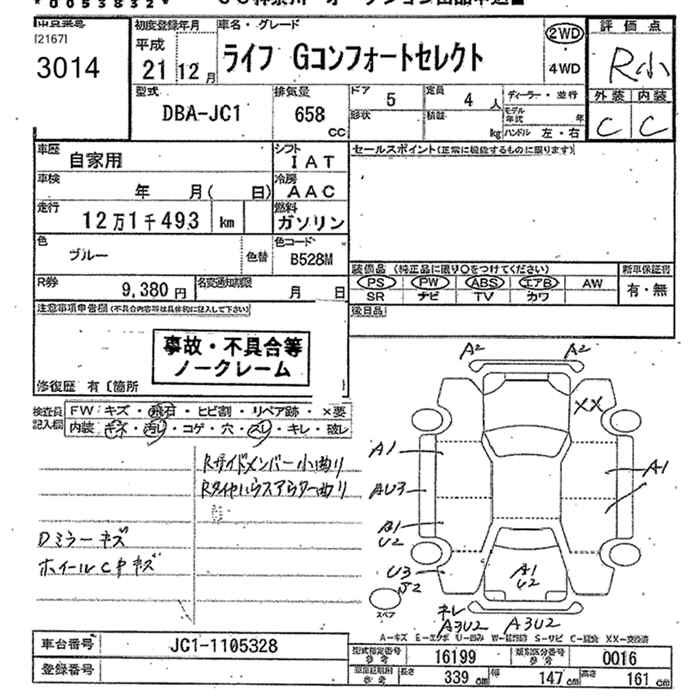 3014
[2167]
初度登録年月
平成
21 12月
車名・グレード
ライフ Gコンフォートセレクト
2WD
4WD
評価点
R小
外装 内装
C C
型式
DBA-JC1
排気量
658
CC
ドア
5
定員
4 人
ディーラー・並行
形状
積載
kg
モデル年式
年
ハンドル 左・右
車歴
自家用
シフト
IAT
セールスポイント(正常に機能するものに限ります)
車検
年 月( 日)
冷房
AAC
走行
12万1千493 km
燃料
ガソリン
色
ブルー
色替
色コード
B528M
装備品 (純正品に限り○をつけてください)
新車保証書
PS PW ABS エアB AW
有・無
SR ナビ TV カワ
R券
9,380円
名変通知期限
月 日
後日品
注意事項申告欄(不具合内容等は具体的に記入して下さい)
事故・不具合等
ノークレーム
修復歴 有〔箇所
検査員
記入欄
FW: キズ・飛石・ヒビ割・リペア跡・×要
内装: キズ・汚レ・コゲ・穴・スレ・キレ・破レ
Rサイドメンバー小曲り
Rタイヤハウスアウター曲り
Dミラーキズ
ホイールCキズ
A2 A2
XX
A1 A1
AU3
A1
U2
U3
A1
U2
スペア
A3U2 A3U2
車台番号
JC1-1105328
登録番号
型式指定番号
参考
16199
類別区分番号
参考
0016
長さ
339 cm
幅
147 cm
高さ
161 cm